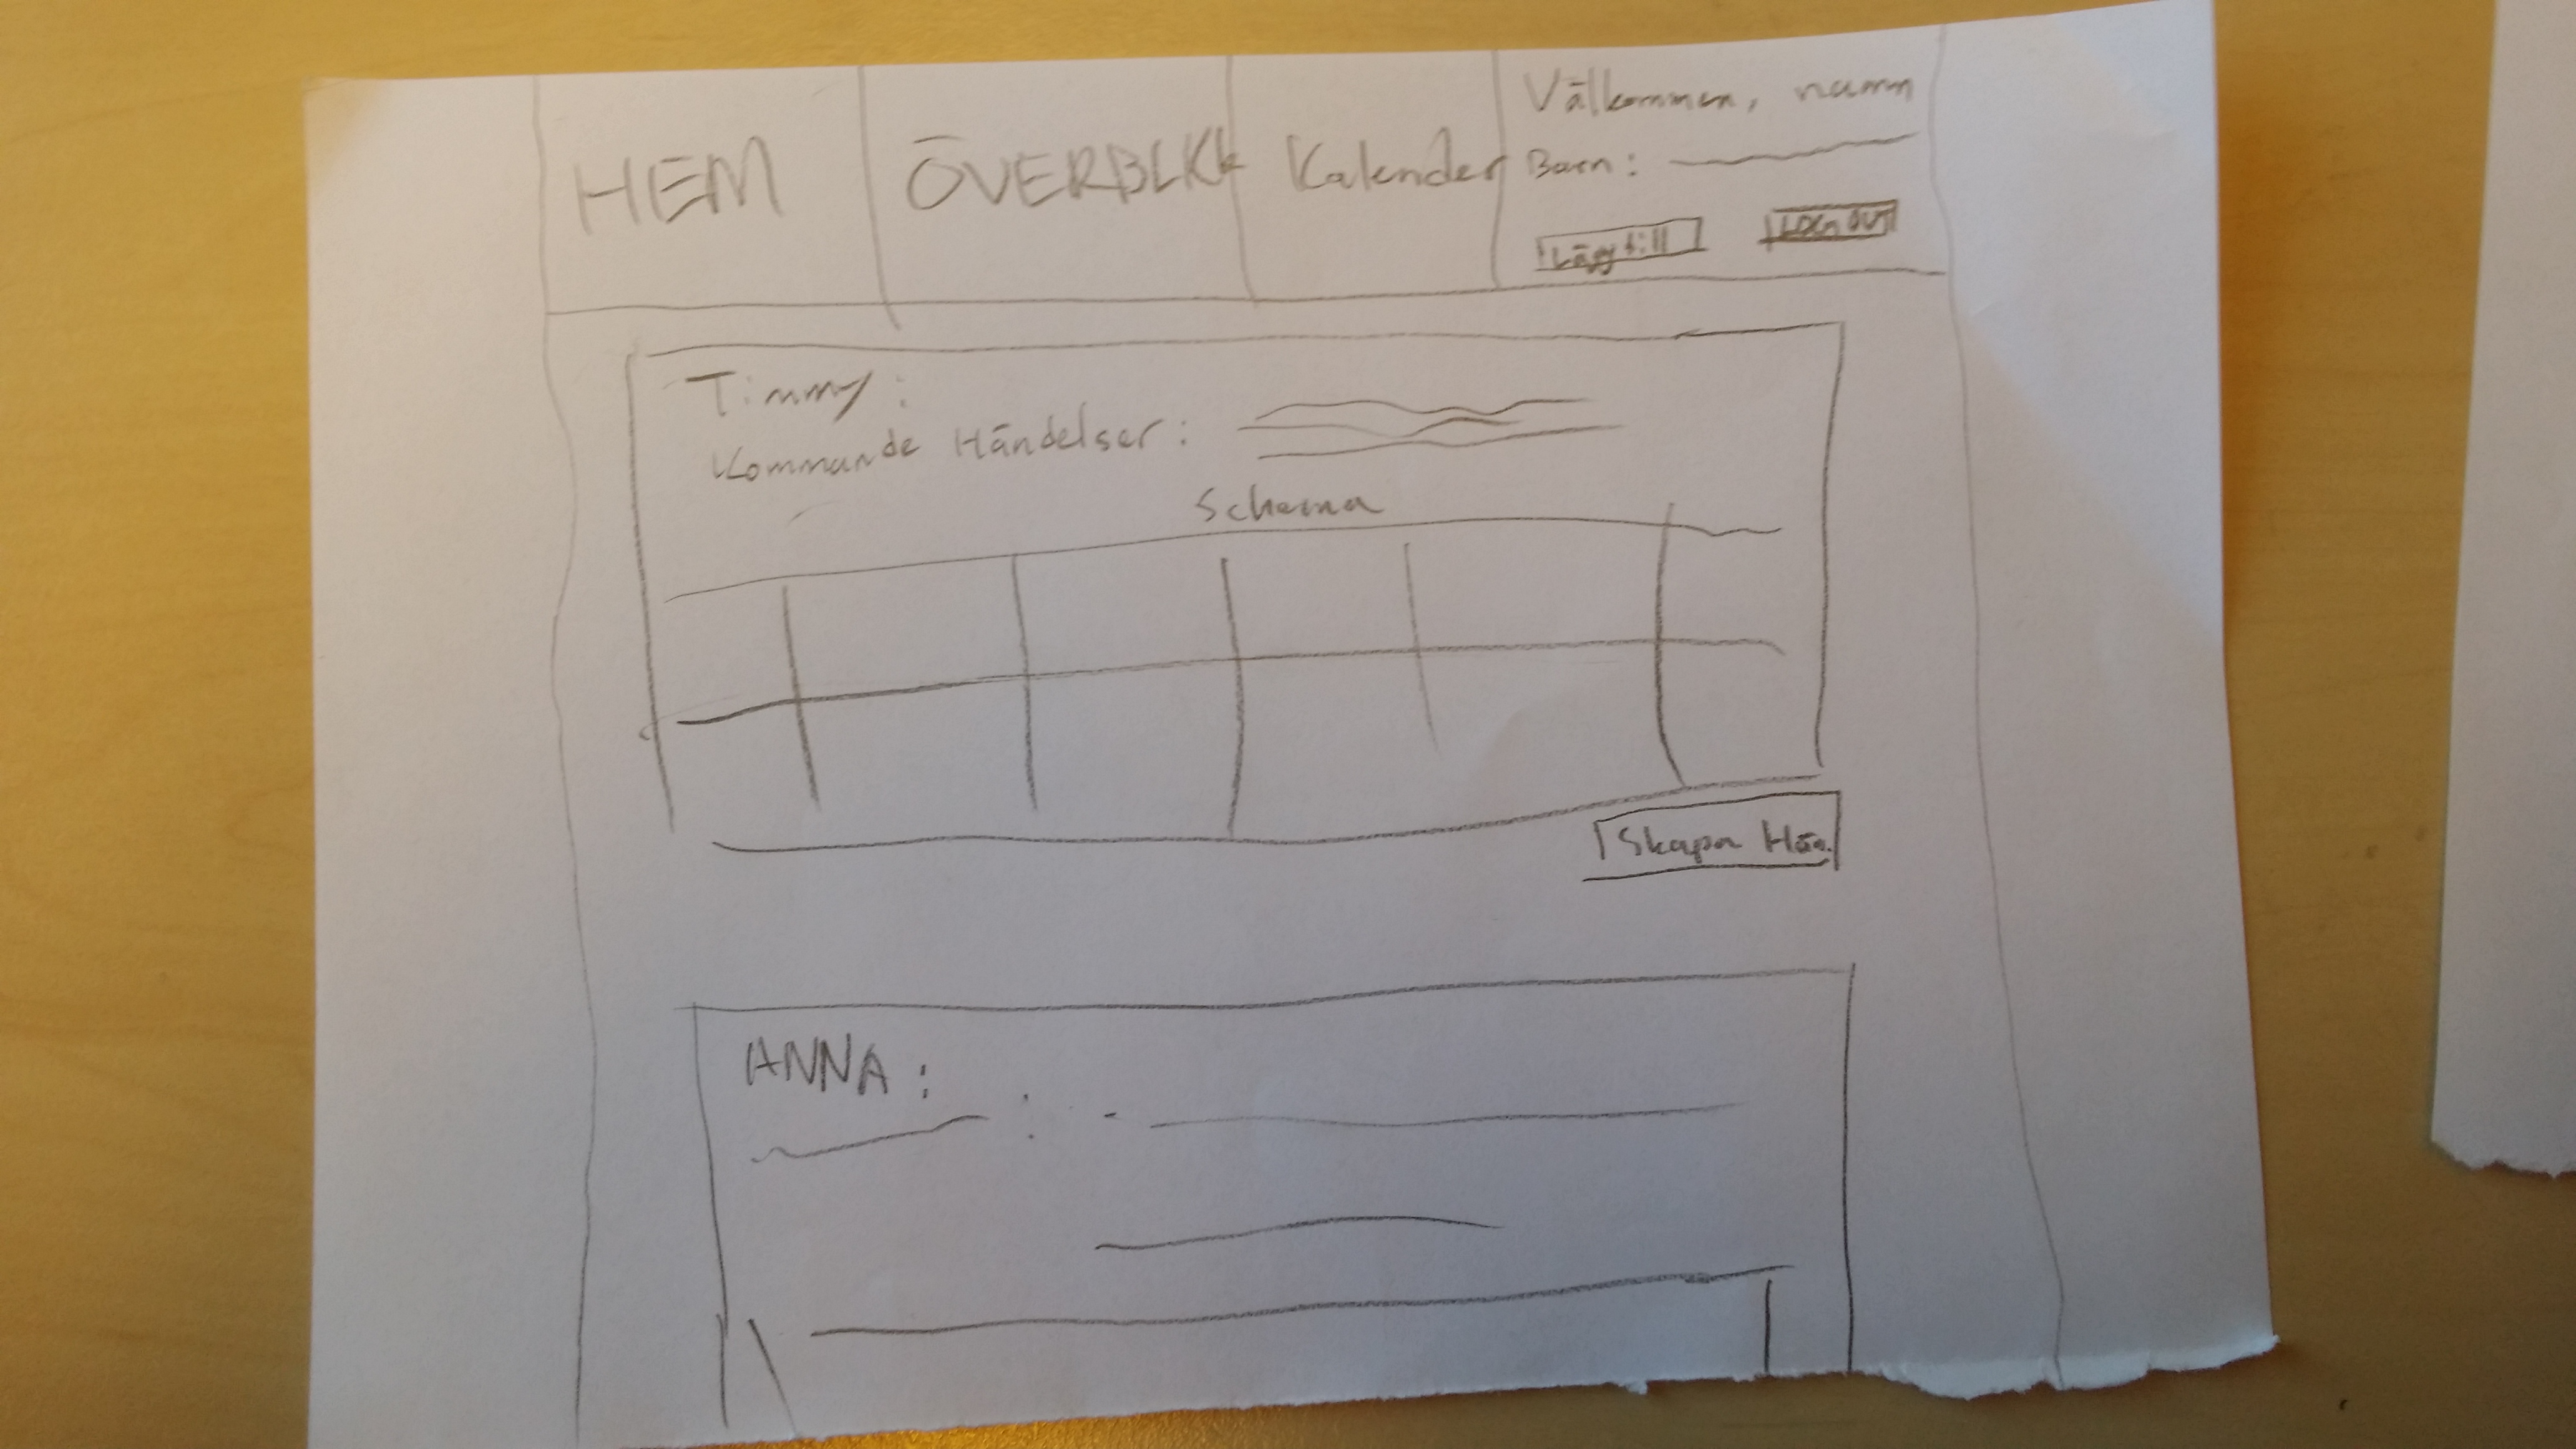 HEM ÖVERBLKk Kalender
Välkommen, namn
Barn:
Lägg till LOGN OUT
Timmy:
Kommande Händelser:
Schema
Skapa Hän.
ANNA: